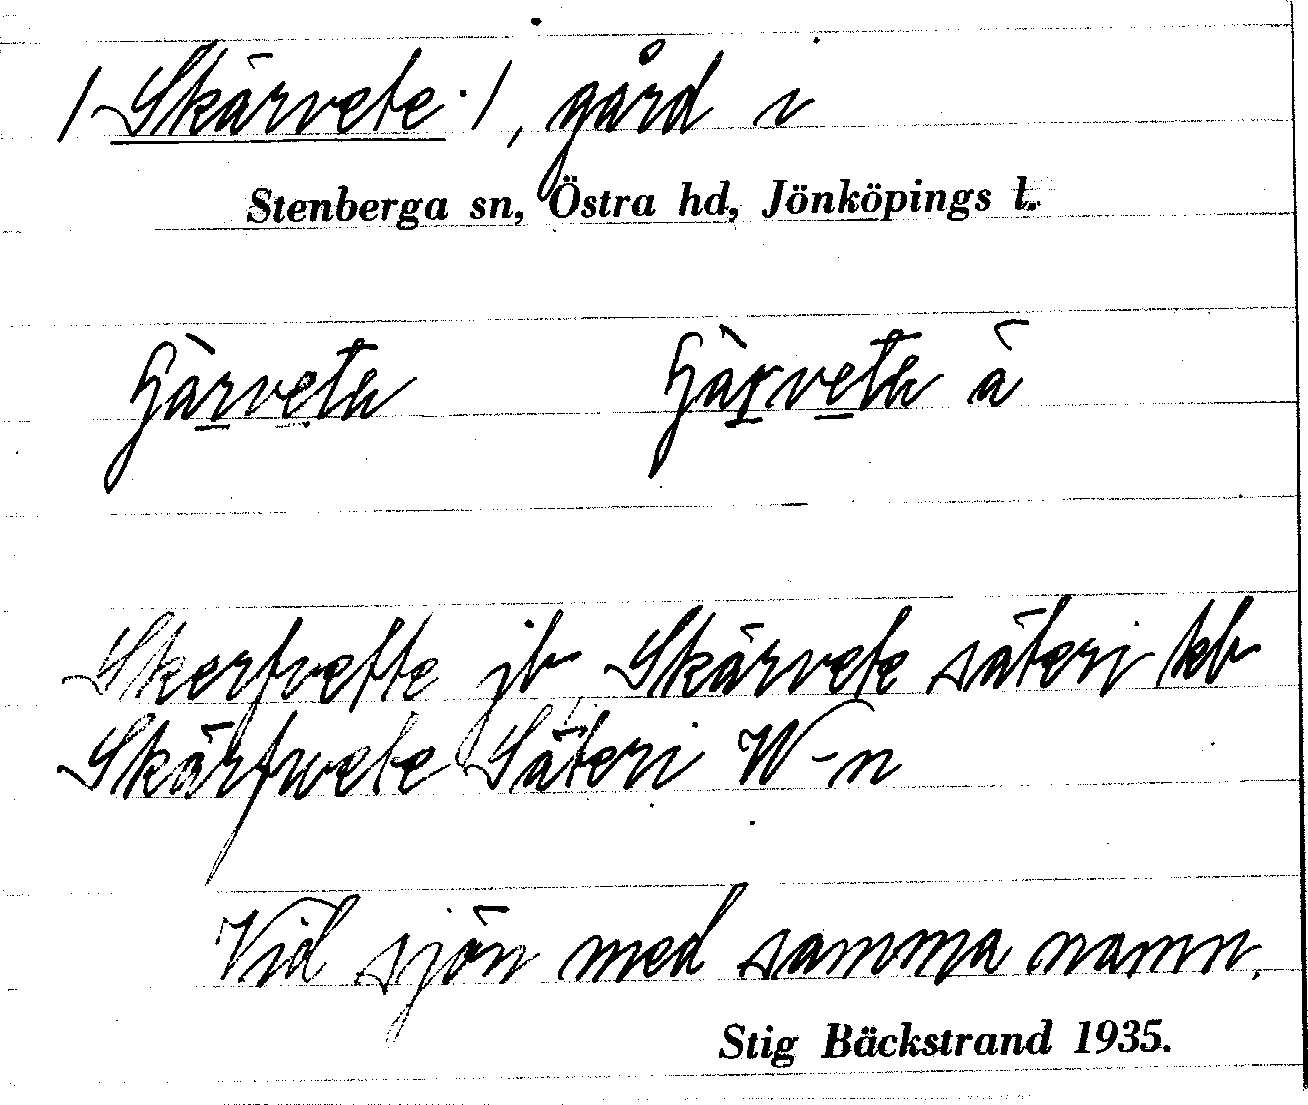 /Skärvete·/, gård i
Stenberga sn, Östra hd, Jönköpings l.
Skerfvette jb Skärvete säteri kb
Skärfwete Säteri W-n
Vid sjön med samma namn.
Stig Bäckstrand 1935.